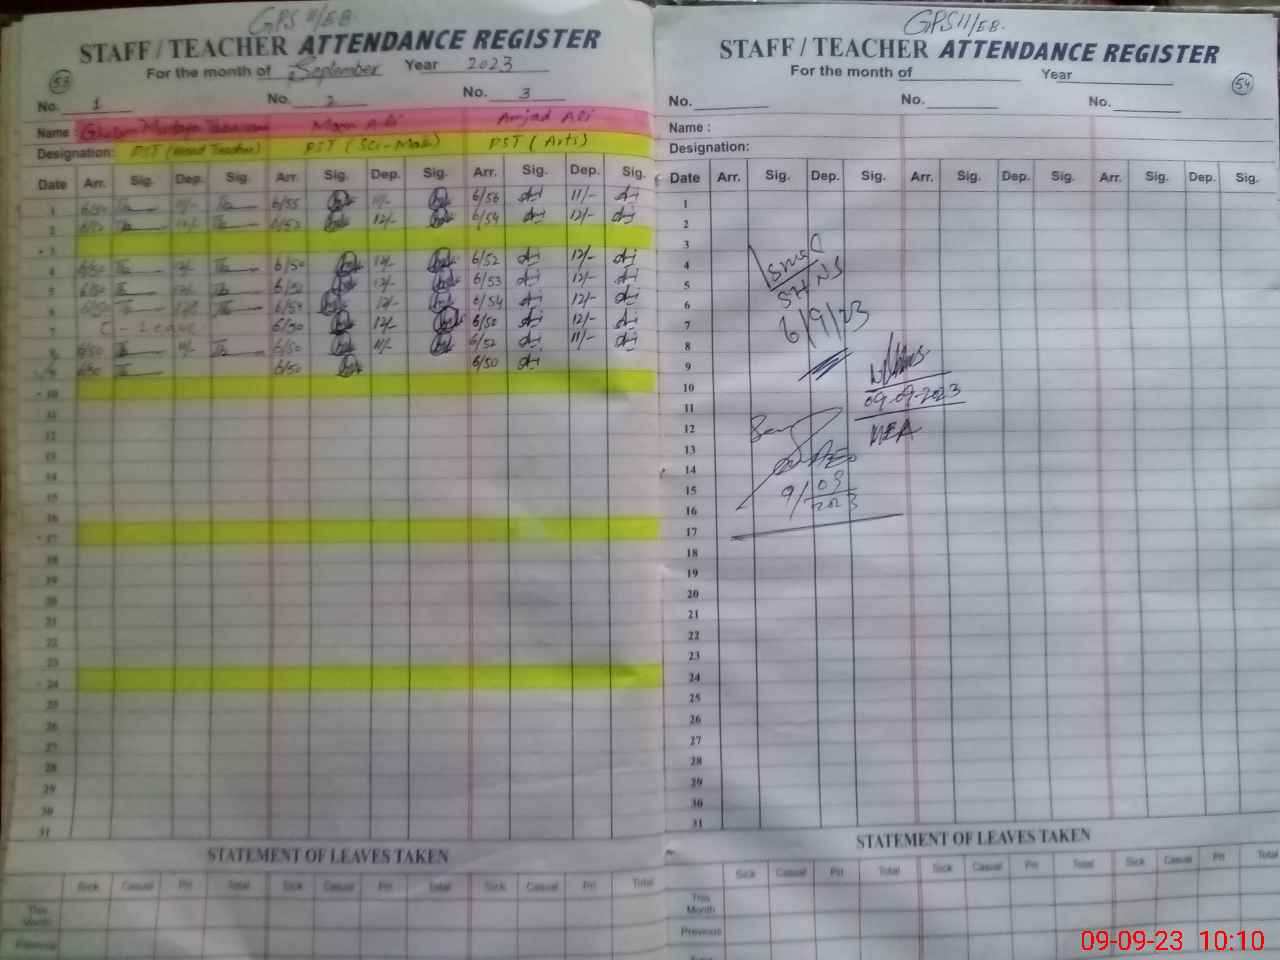 GPS 11/EB.
STAFF / TEACHER ATTENDANCE REGISTER
For the month of September Year 2023
53
No. 1 No. 2 No. 3
Name Ghulam Murtaza Ali Amjad Ali
Designation: PST (Head Teacher) PST (Sci-Math) PST (Arts)
Date Arr. Sig. Dep. Sig. Arr. Sig. Dep. Sig. Arr. Sig. Dep. Sig.
1 6/50 11/- 6/55 11/- 6/56 11/-
2 6/52 12/- 6/52 12/- 6/54 12/-
3
4 6/50 12/- 6/50 12/- 6/52 12/-
5 6/50 12/- 6/50 12/- 6/53 12/-
6 6/50 12/- 6/54 12/- 6/54 12/-
7 C-Leave 6/50 12/- 6/50 12/-
8 6/50 11/- 6/50 11/- 6/52 11/-
9 6/50 6/50 6/50
10
11
12
13
14
15
16
17
18
19
20
21
22
23
24
25
26
27
28
29
30
31
STATEMENT OF LEAVES TAKEN
Sick Casual Pri Total Sick Casual Pri Total Sick Casual Pri Total
This Month
Previous
GPS 11/EB.
STAFF / TEACHER ATTENDANCE REGISTER
For the month of Year
54
No. No. No.
Name :
Designation:
Date Arr. Sig. Dep. Sig. Arr. Sig. Dep. Sig. Arr. Sig. Dep. Sig.
1
2
3
4
5
6
7
8
9
10
11
12
13
14
15
16
17
18
19
20
21
22
23
24
25
26
27
28
29
30
31
6/9/23
09-09-2023
MEA
AEO
9/09
2023
STATEMENT OF LEAVES TAKEN
Sick Casual Pri Total Sick Casual Pri Total Sick Casual Pri Total
This Month
Previous
09-09-23 10:10